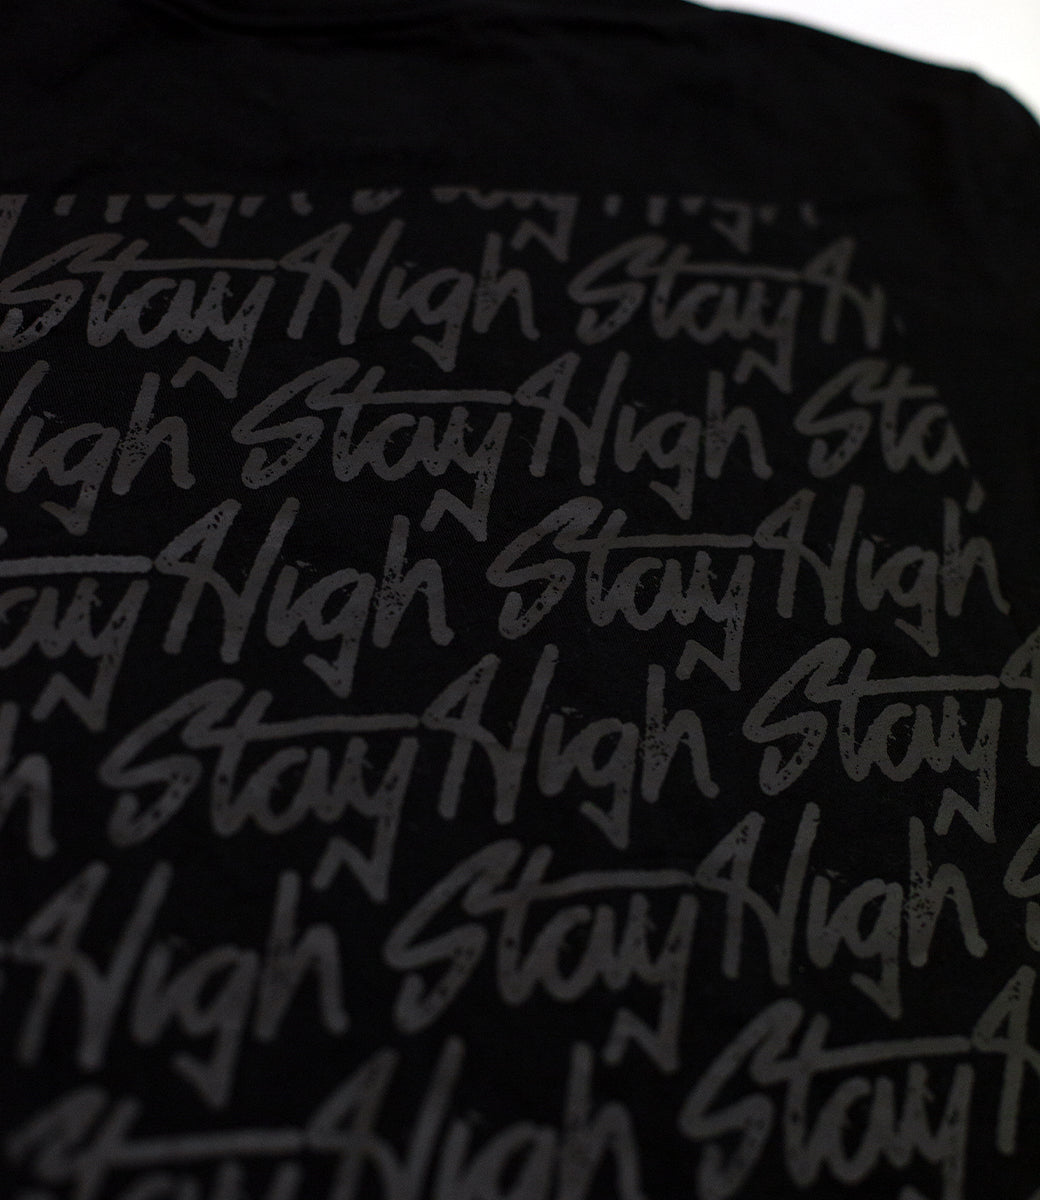 High Stay High
Stay High Stay H
High Stay High Sta
Stay High Stay High
h Stay High Stay
High Stay High S
Stay High Stay